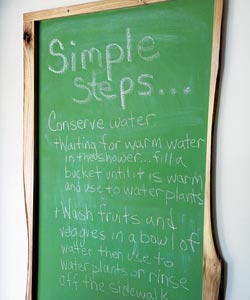 Simple
steps...
Conserve water
+Waiting for warm water
in the shower... fill a
bucket until it is warm
and use to water plants
+Wash fruits and
veggies in a bowl of
water then use to
water plants or rinse
off the sidewalk